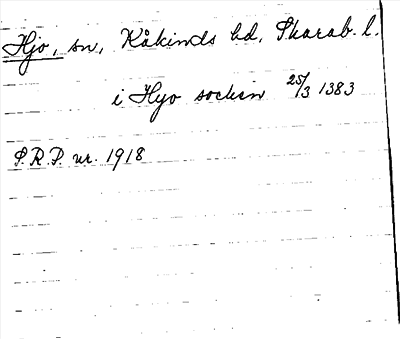 Hjo, sn, Kåkinds hd, Skarab. l.
i Hyo sockin 25/3 1383
S.R.P. nr. 1918